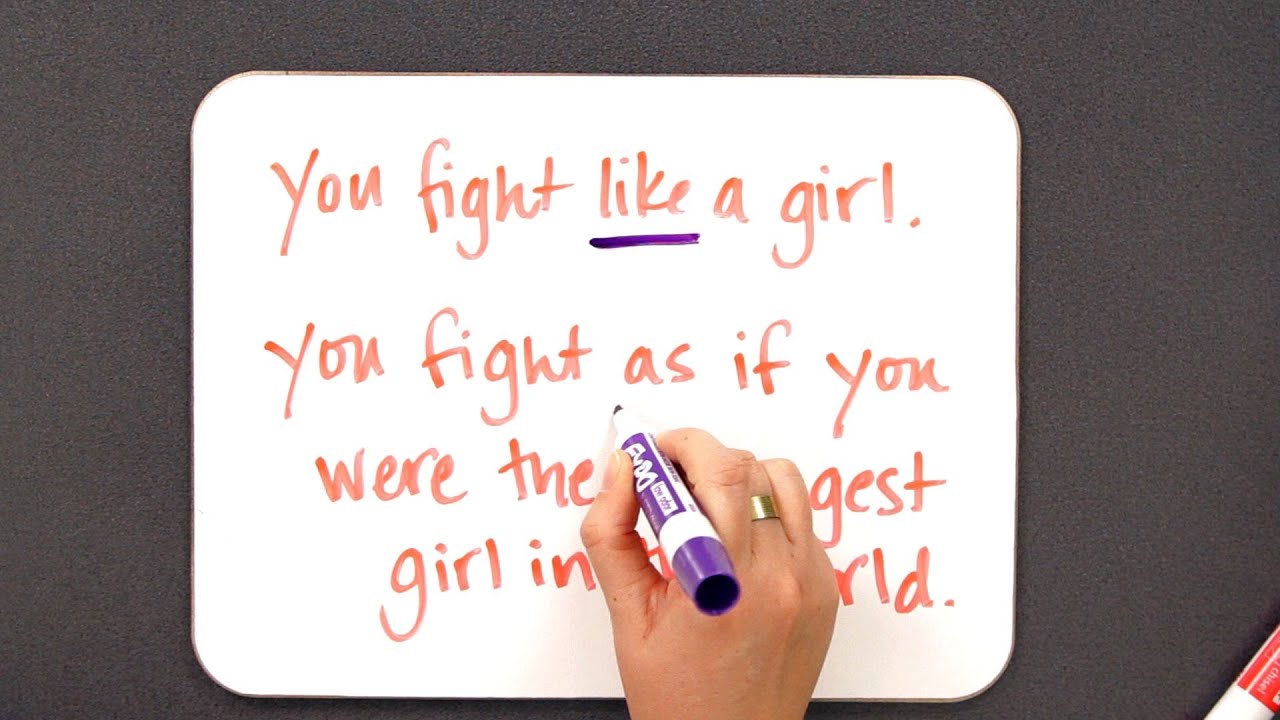 You fight like a girl.
You fight as if you
were the gest
girl in rld.
EXPO
low odor
chisel